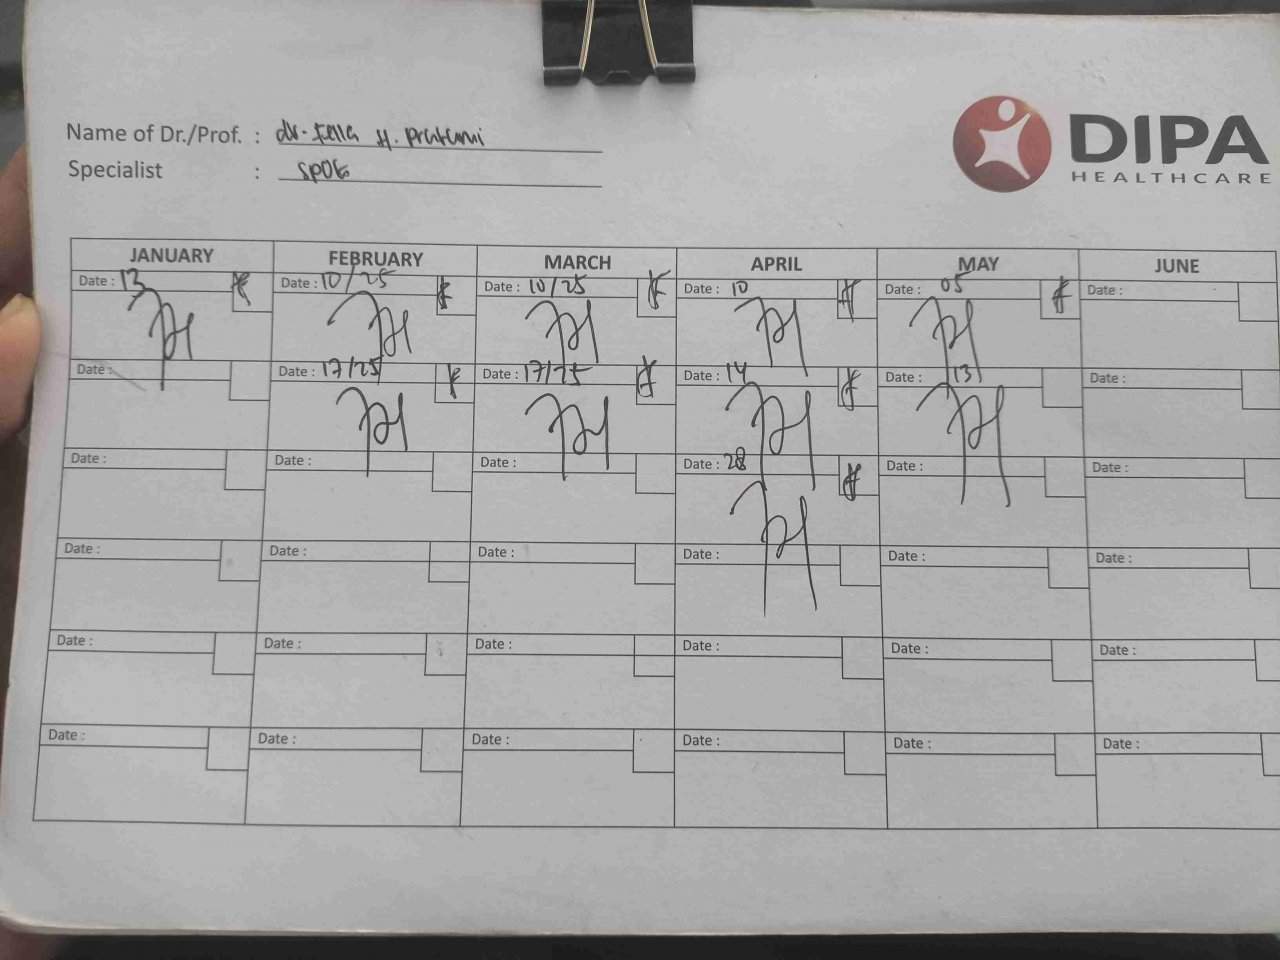 DIPA
HEALTHCARE
Name of Dr./Prof. : dr. Fella H. Pratami
Specialist : SPOG
JANUARY FEBRUARY MARCH APRIL MAY JUNE
Date : 13 Date : 10/25 Date : 10/25 Date : 10 Date : 05 Date :
Date : Date : 17/25 Date : 17/25 Date : 14 Date : 13 Date :
Date : Date : Date : Date : 28 Date : Date :
Date : Date : Date : Date : Date : Date :
Date : Date : Date : Date : Date : Date :
Date : Date : Date : Date : Date : Date :